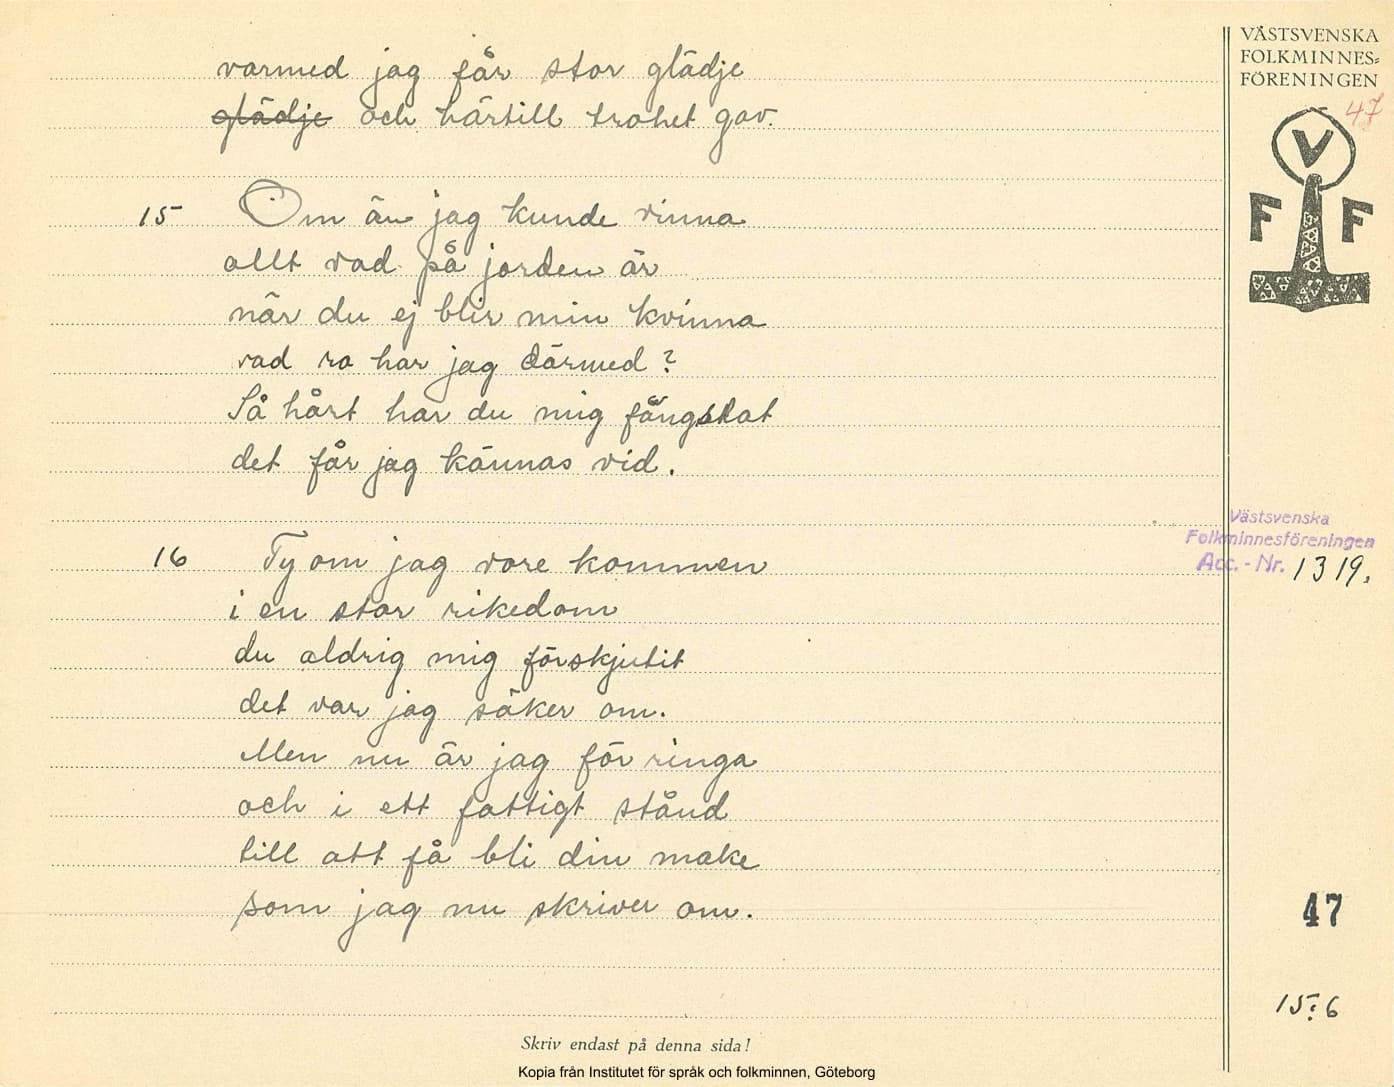 varmed jag får stor glädje
glädje och härtill trohet gav.
15 Om än jag kunde vinna
allt vad på jorden är
när du ej blir min kvinna
vad ro har jag därmed?
Så hårt har du mig fängslat
det får jag kännas vid.
16 Ty om jag vore kommen
i en stor rikedom
du aldrig mig förskjutit
det var jag säker om.
Men nu är jag för ringa
och i ett fattigt stånd
till att få bli din make
som jag nu skriver om.
Skriv endast på denna sida!
Kopia från Institutet för språk och folkminnen, Göteborg
VÄSTSVENSKA
FOLKMINNES=
FÖRENINGEN
47
V
F F
Västsvenska
Folkminnesföreningen
Acc.-Nr. 1319.
47
15:6